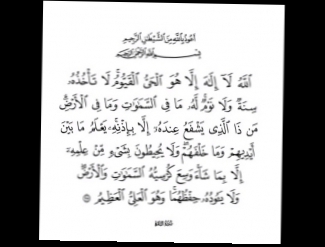 اعوذ بالله من الشيطان الرجيم
بسم الله الرحمن الرحيم
ٱللَّهُ لَآ إِلَٰهَ إِلَّا هُوَ ٱلْحَىُّ ٱلْقَيُّومُ ۚ لَا تَأْخُذُهُۥ
سِنَةٌ وَلَا نَوْمٌ ۚ لَّهُۥ مَا فِى ٱلسَّمَٰوَٰتِ وَمَا فِى ٱلْأَرْضِ ۗ
مَن ذَا ٱلَّذِى يَشْفَعُ عِندَهُۥٓ إِلَّا بِإِذْنِهِۦ ۚ يَعْلَمُ مَا بَيْنَ
أَيْدِيهِمْ وَمَا خَلْفَهُمْ ۖ وَلَا يُحِيطُونَ بِشَىْءٍ مِّنْ عِلْمِهِۦٓ
إِلَّا بِمَا شَآءَ ۚ وَسِعَ كُرْسِيُّهُ ٱلسَّمَٰوَٰتِ وَٱلْأَرْضَ ۖ
وَلَا يَـُٔودُهُۥ حِفْظُهُمَا ۚ وَهُوَ ٱلْعَلِىُّ ٱلْعَظِيمُ